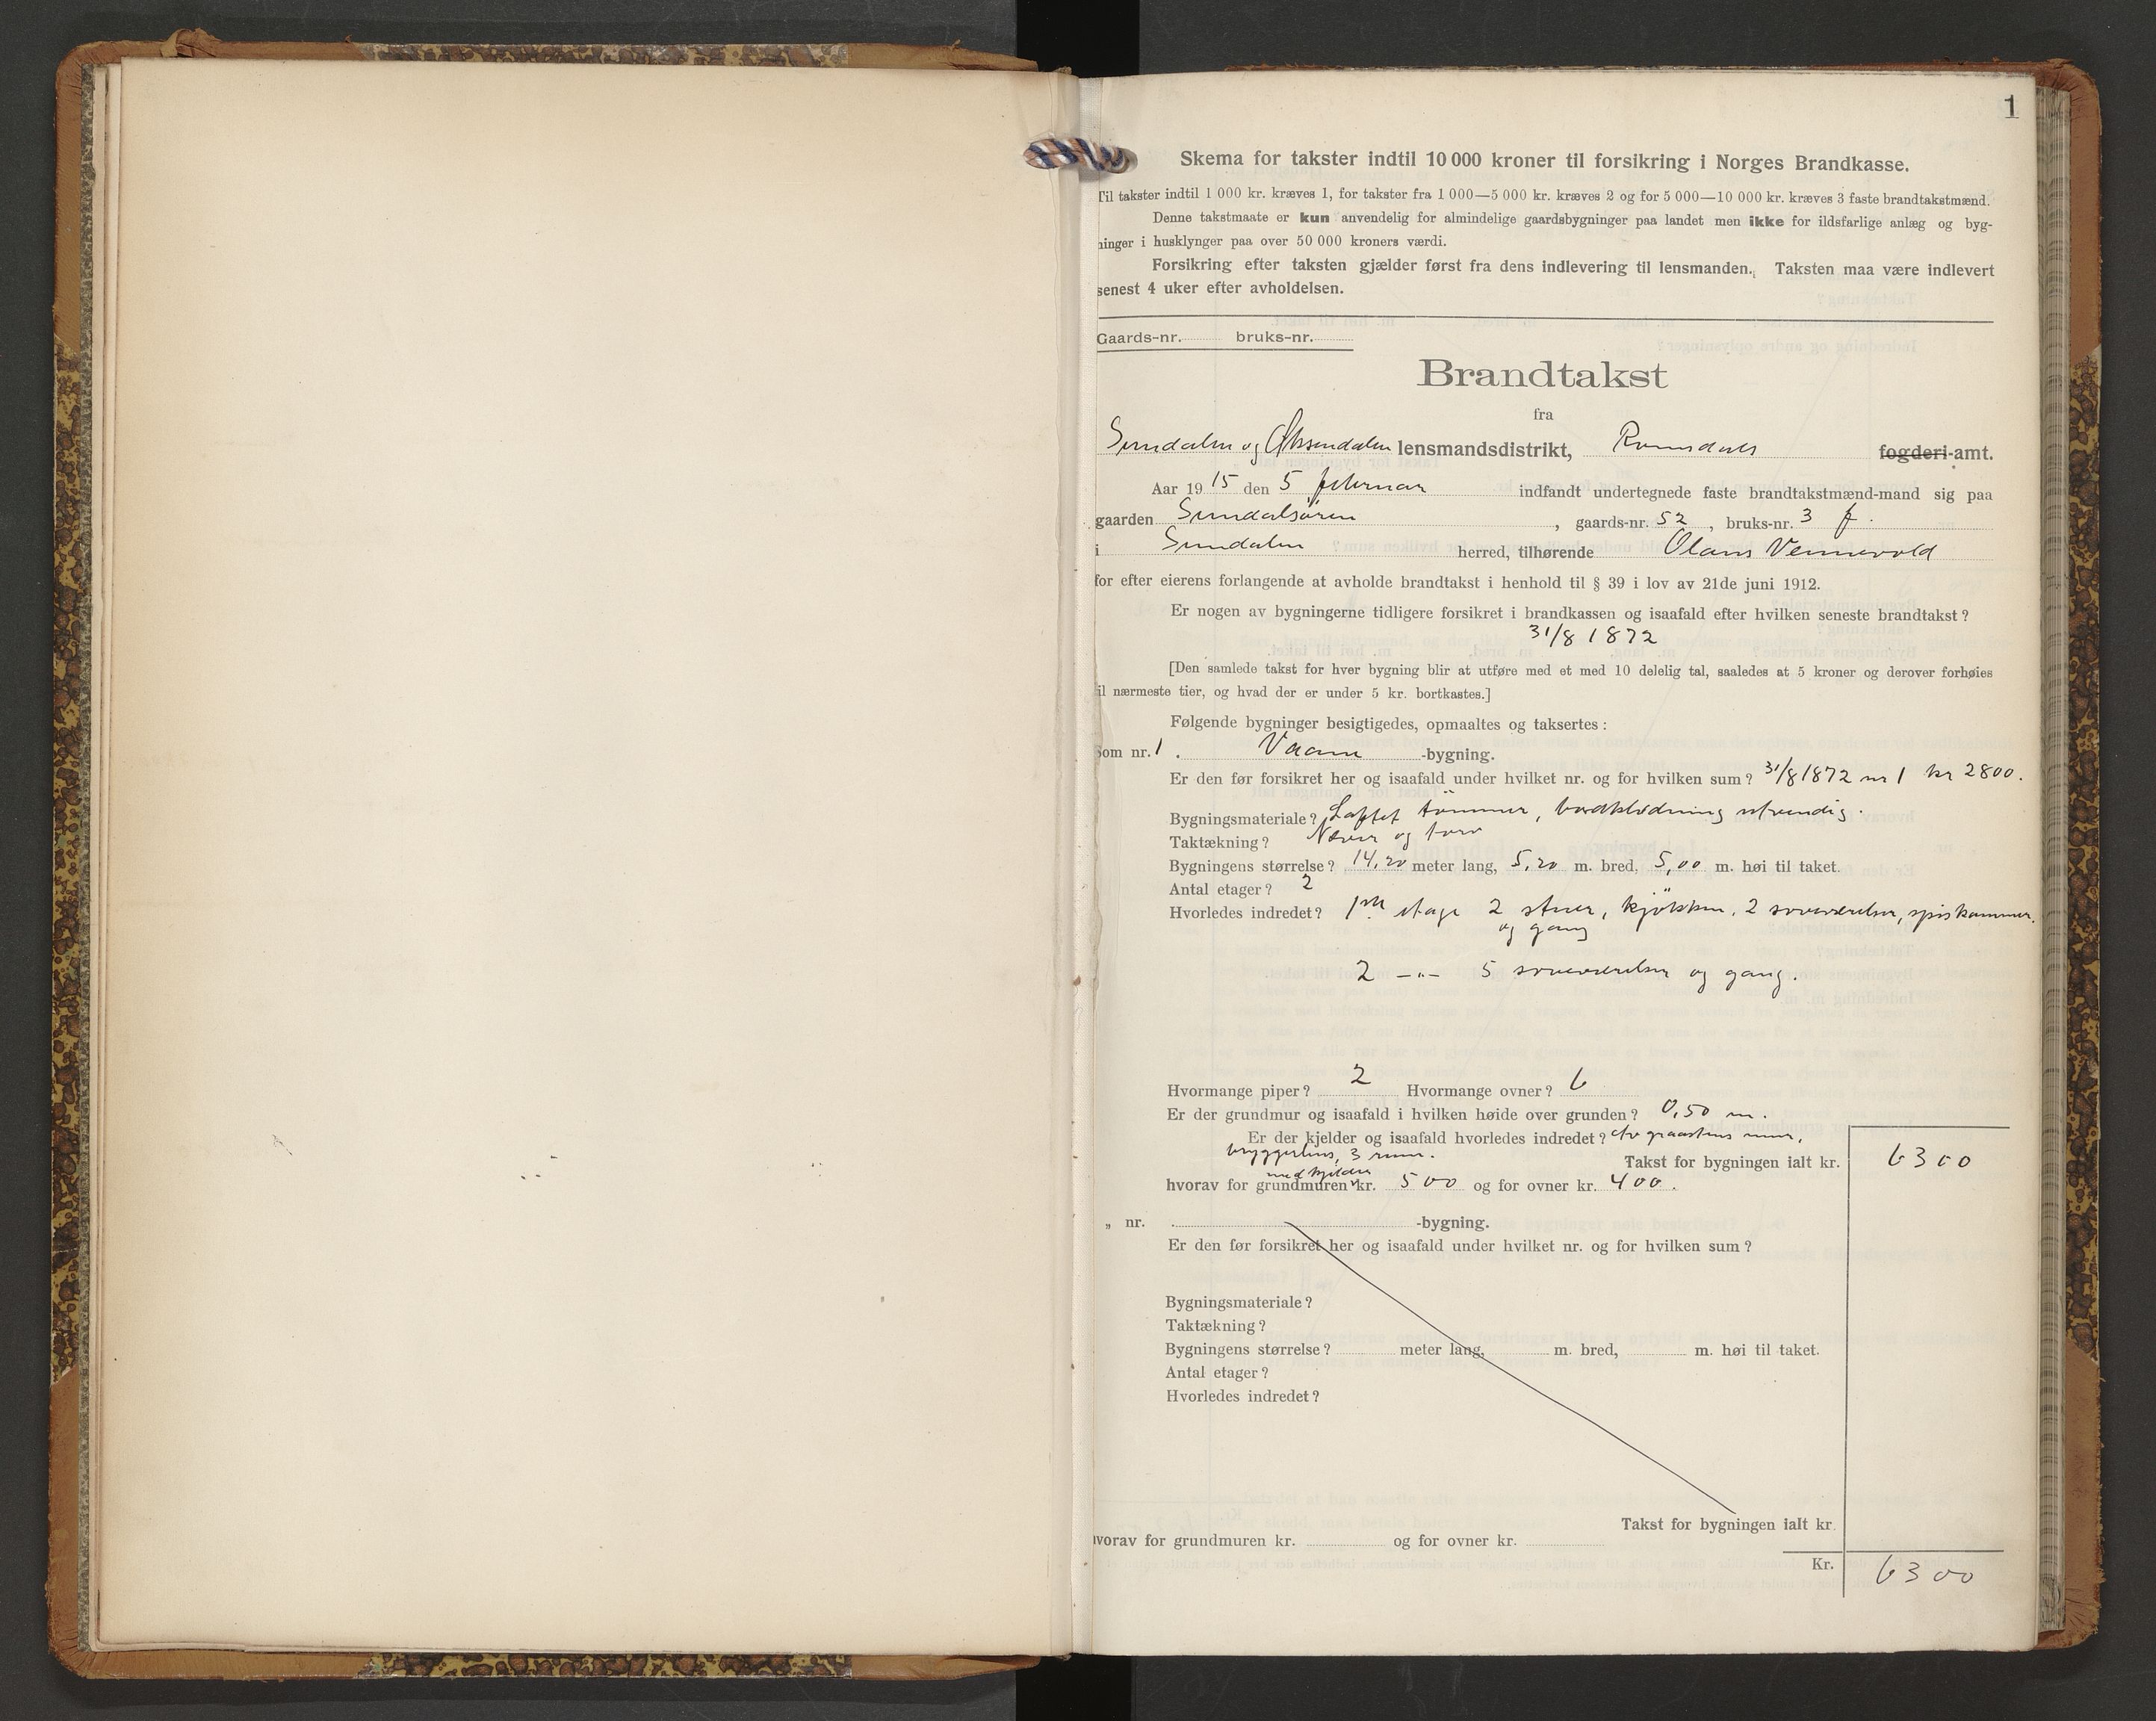 1
Skema for takster indtil 10 000 kroner til forsikring i Norges Brandkasse.
Til takster indtil 1 000 kr. kræves 1, for takster fra 1 000—5 000 kr. kræves 2 og for 5 000—10 000 kr. kræves 3 faste brandtakstmænd.
Denne takstmaate er kun anvendelig for almindelige gaardsbygninger paa landet men ikke for ildsfarlige anlæg og byg-
ninger i husklynger paa over 50 000 kroners værdi.
Forsikring efter taksten gjælder først fra dens indlevering til lensmanden. Taksten maa være indlevert
senest 4 uker efter avholdelsen.
Gaards-nr. bruks-nr.
Brandtakst
fra
Sundalen og Øksendalen lensmandsdistrikt, Romsdals fogderi-amt.
Aar 1915 den 5 februar indfandt undertegnede faste brandtakstmænd-mand sig paa
gaarden Sundalsøren, gaards-nr. 52, bruks-nr. 3 f.
i Sundalen herred, tilhørende Olaus Vennevold
for efter eierens forlangende at avholde brandtakst i henhold til § 39 i lov av 21de juni 1912.
Er nogen av bygningerne tidligere forsikret i brandkassen og isaafald efter hvilken seneste brandtakst?
31/8 1872
[Den samlede takst for hver bygning blir at utføre med et med 10 delelig tal, saaledes at 5 kroner og derover forhøies
il nærmeste tier, og hvad der er under 5 kr. bortkastes.]
Følgende bygninger besigtigedes, opmaaltes og taksertes:
Som nr. 1. Vaane-bygning.
Er den før forsikret her og isaafald under hvilket nr. og for hvilken sum? 31/8 1872 nr 1 kr 2800.
Bygningsmateriale? Laftet tömmer, bordklædning utvendig.
Taktækning? Næver og torv
Bygningens størrelse? 14,20 meter lang, 5,20 m. bred, 5,00 m. høi til taket.
Antal etager? 2
Hvorledes indredet? 1ste etage 2 stuer, kjökken, 2 soveværelser, spiskammer,
og gang
2 -"- 5 soveværelser og gang.
Hvormange piper? 2 Hvormange ovner? 6
Er der grundmur og isaafald i hvilken høide over grunden? 0,50 m.
Er der kjelder og isaafald hvorledes indredet? Av graastens mur,
bryggerhus, 3 rum.
Takst for bygningen ialt kr. 6300
med kjelder
hvorav for grundmuren kr. 500 og for ovner kr. 400.
„ nr. . -bygning.
Er den før forsikret her og isaafald under hvilket nr. og for hvilken sum?
Bygningsmateriale?
Taktækning?
Bygningens størrelse? meter lang, m. bred, m. høi til taket.
Antal etager?
Hvorledes indredet?
Takst for bygningen ialt kr.
hvorav for grundmuren kr. og for ovner kr.
Kr. 6300